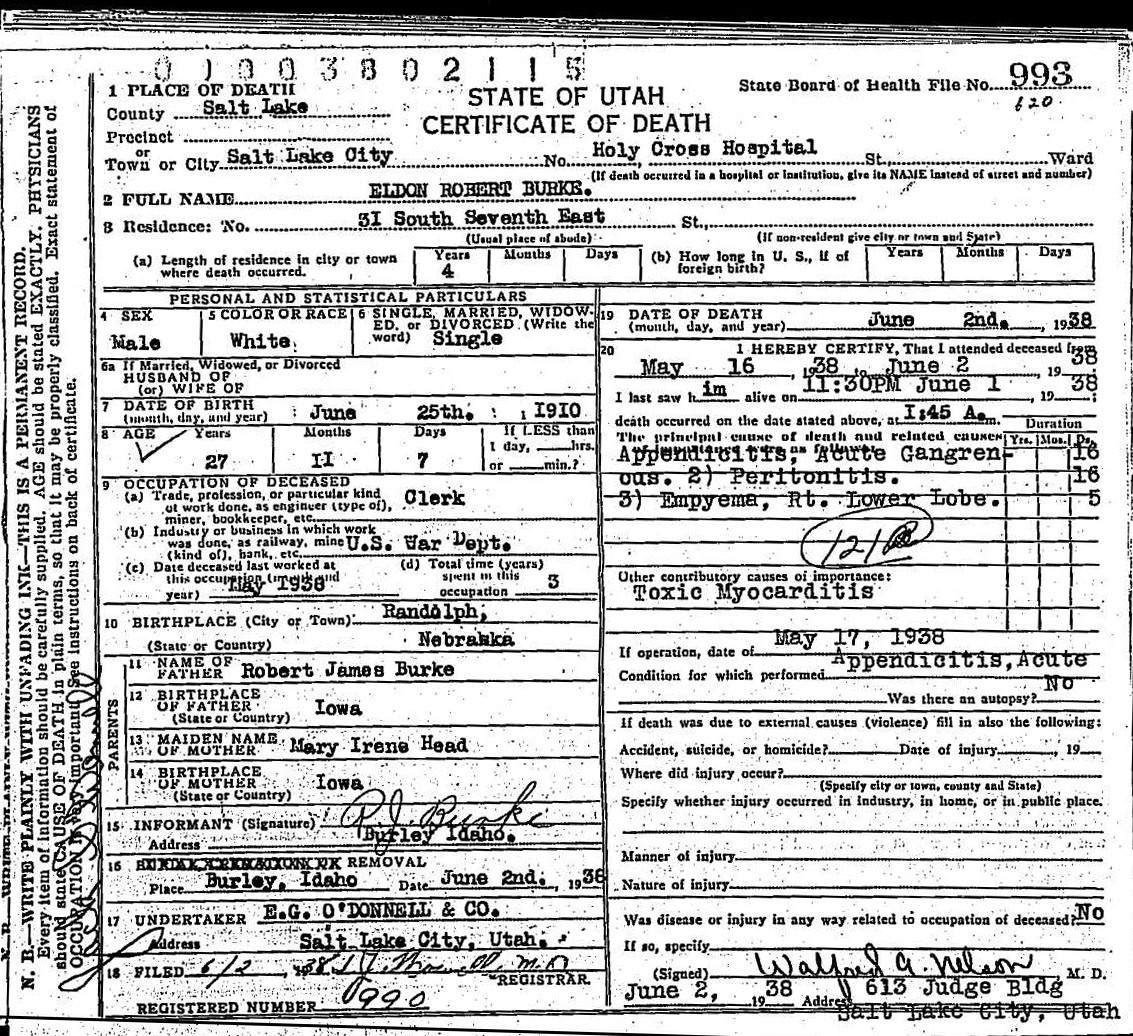 0 1 0 0 3 8 0 2 1 1 5
State Board of Health File No. 993
620
STATE OF UTAH
CERTIFICATE OF DEATH
1 PLACE OF DEATH
County Salt Lake
Precinct
or
Town or City Salt Lake City No. Holy Cross Hospital St., Ward
(If death occurred in a hospital or institution, give its NAME instead of street and number)
2 FULL NAME ELDON ROBERT BURKE.
3 Residence: No. 31 South Seventh East St.,
(Usual place of abode) (If non-resident give city or town and State)
(a) Length of residence in city or town where death occurred. Years 4 Months Days
(b) How long in U. S., if of foreign birth? Years Months Days
PERSONAL AND STATISTICAL PARTICULARS
4 SEX Male
5 COLOR OR RACE White
6 SINGLE, MARRIED, WIDOW-
ED, or DIVORCED (Write the
word) Single
6a If Married, Widowed, or Divorced
HUSBAND OF
(or) WIFE OF
7 DATE OF BIRTH
(month, day, and year) June 25th. , 1910
8 AGE Years 27 Months II Days 7
If LESS than
1 day, hrs.
or min.?
9 OCCUPATION OF DECEASED
(a) Trade, profession, or particular kind
of work done, as engineer (type of),
miner, bookkeeper, etc. Clerk
(b) Industry or business in which work
was done, as railway, mine
(kind of), bank, etc. U.S. War Dept.
(c) Date deceased last worked at
this occupation (month and
year) May 1938
(d) Total time (years)
spent in this
occupation 3
10 BIRTHPLACE (City or Town) Randolph,
(State or Country) Nebraska
PARENTS
11 NAME OF
FATHER Robert James Burke
12 BIRTHPLACE
OF FATHER Iowa
(State or Country)
13 MAIDEN NAME
OF MOTHER Mary Irene Head
14 BIRTHPLACE
OF MOTHER Iowa
(State or Country)
15 INFORMANT (Signature) R J Burke
Address Burley Idaho.
16 BURIAL CREMATION OR REMOVAL
Place Burley, Idaho Date June 2nd. , 1938
17 UNDERTAKER E.G. O'DONNELL & CO.
Address Salt Lake City, Utah.
18 FILED 6/2 , 1938 M.D.
REGISTRAR
REGISTERED NUMBER 990
19 DATE OF DEATH
(month, day, and year) June 2nd. , 1938
20 I HEREBY CERTIFY, That I attended deceased from
May 16 , 1938 to June 2 , 1938
I last saw him alive on 11:30PM June 1 , 19 38;
death occurred on the date stated above, at 1:45 A. m.
The principal cause of death and related causes
Duration
Yrs. Mos. Ds.
Appendicitis, Acute Gangren- 16
ous. 2) Peritonitis. 16
3) Empyema, Rt. Lower Lobe. 5
121
Other contributory causes of importance:
Toxic Myocarditis
If operation, date of May 17, 1938
Condition for which performed Appendicitis, Acute
Was there an autopsy? No
If death was due to external causes (violence) fill in also the following:
Accident, suicide, or homicide? Date of injury , 19
Where did injury occur?
(Specify city or town, county and State)
Specify whether injury occurred in industry, in home, or in public place.
Manner of injury
Nature of injury
Was disease or injury in any way related to occupation of deceased? No
If so, specify
(Signed) Walfred A. Nelson , M. D.
June 2, 19 38 Address 613 Judge Bldg
Salt Lake City, Utah
N. B.—WRITE PLAINLY WITH UNFADING INK—THIS IS A PERMANENT RECORD.
Every item of information should be carefully supplied. AGE should be stated EXACTLY. PHYSICIANS
should state CAUSE OF DEATH in plain terms, so that it may be properly classified. Exact statement of
OCCUPATION is very important. See instructions on back of certificate.